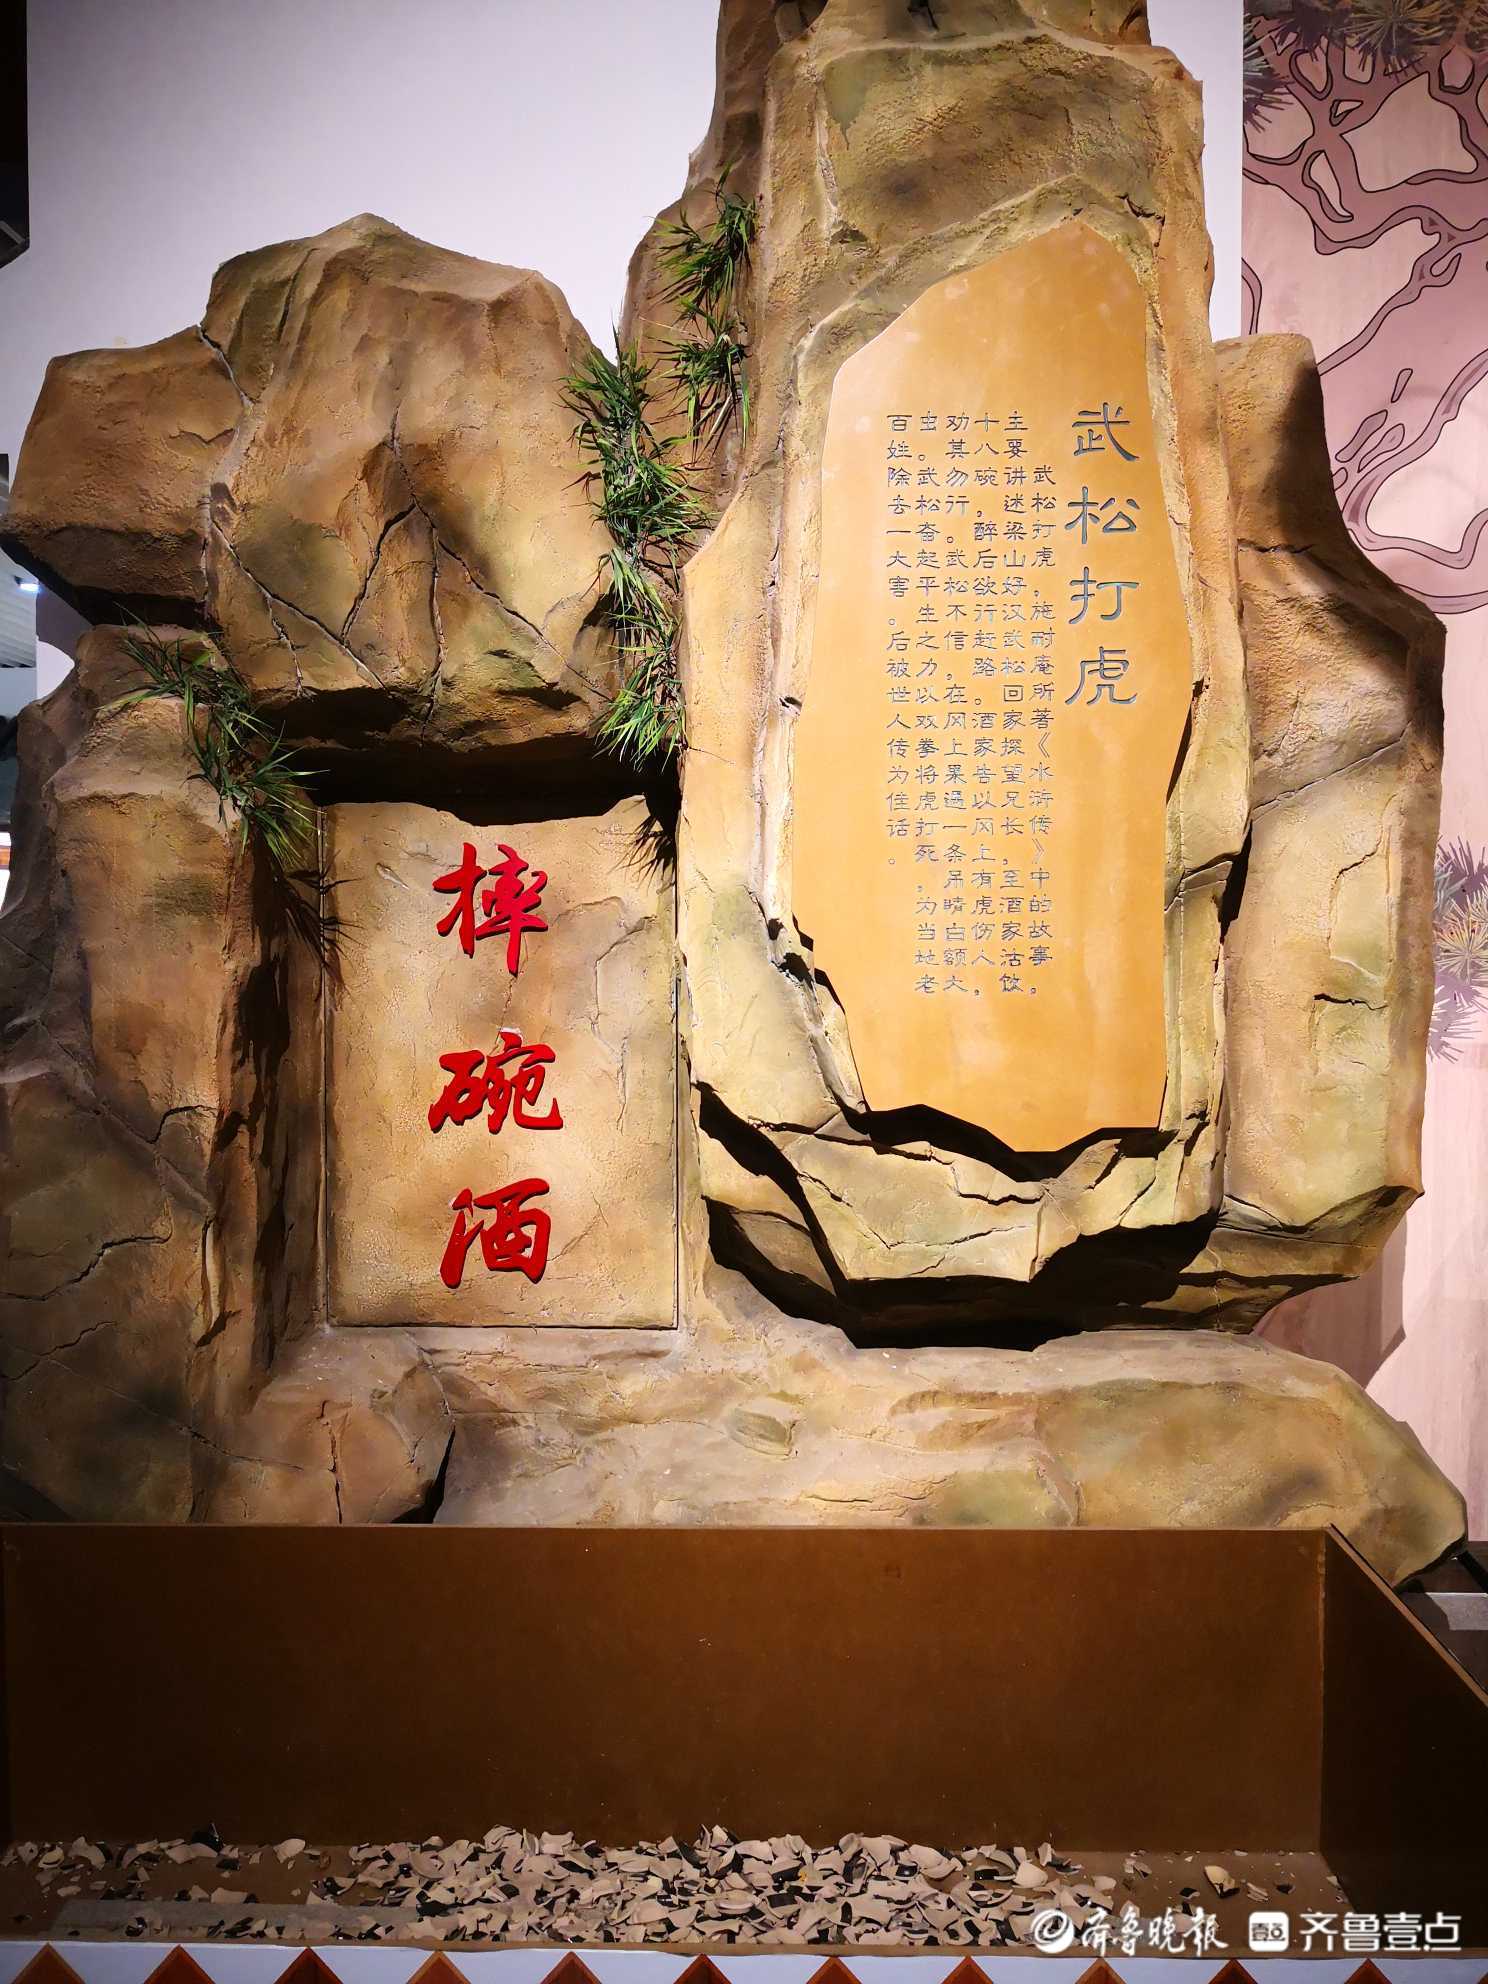 武松打虎
武松打虎，施耐庵所著《水浒传》中的故事，
主要讲述梁山好汉武松回家探望兄长，至酒家沽饮
十八碗，醉后欲行赶路。酒家告以冈上有虎伤人，
劝其勿行。武松不信，在冈上果遇一条吊睛白额大
虫。武松奋起平生之力，以双拳将虎打死，为当地老
百姓除去一大害。后被世人传为佳话。
摔碗酒
齐鲁晚报 齐鲁壹点